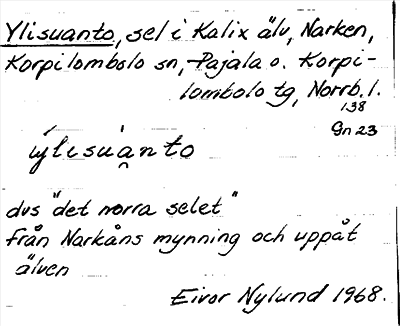 Ylisuanto, sel i Kalix älv, Narken,
Korpilombolo sn, Pajala o. Korpi-
lombolo tg, Norrb. l.
138
Gn 23
ẃlisuànto
dvs "det norra selet"
från Narkåns mynning och uppåt
älven
Eivor Nylund 1968.